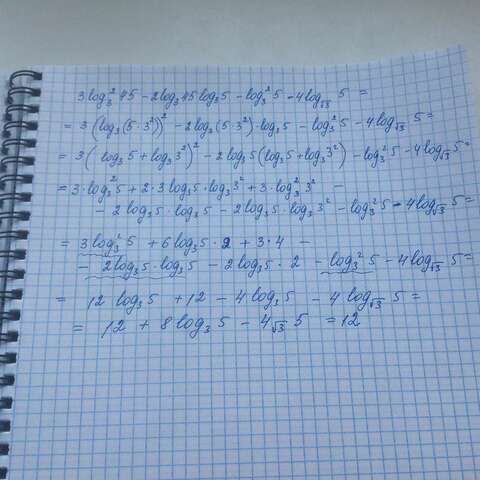 3log₃²45 - 2log₃45log₃5 - log₃²5 - 4log_√3 5 =
3(log₃(5·3²))² - 2log₃(5·3²)·log₃5 - log₃²5 - 4log_√3 5 =
= 3(log₃5 + log₃3²)² - 2log₃5(log₃5 + log₃3²) - log₃²5 - 4log_√3 5 =
= 3·log₃²5 + 2·3log₃5·log₃3² + 3·log₃²3² -
- 2log₃5·log₃5 - 2log₃5·log₃3² - log₃²5 - 4log_√3 5 =
= 3log₃²5 + 6log₃5·2 + 3·4 -
- 2log₃5·log₃5 - 2log₃5·2 - log₃²5 - 4log_√3 5 =
= 12log₃5 + 12 - 4log₃5 - 4log_√3 5 =
= 12 + 8log₃5 - 4_√3 5 = 12